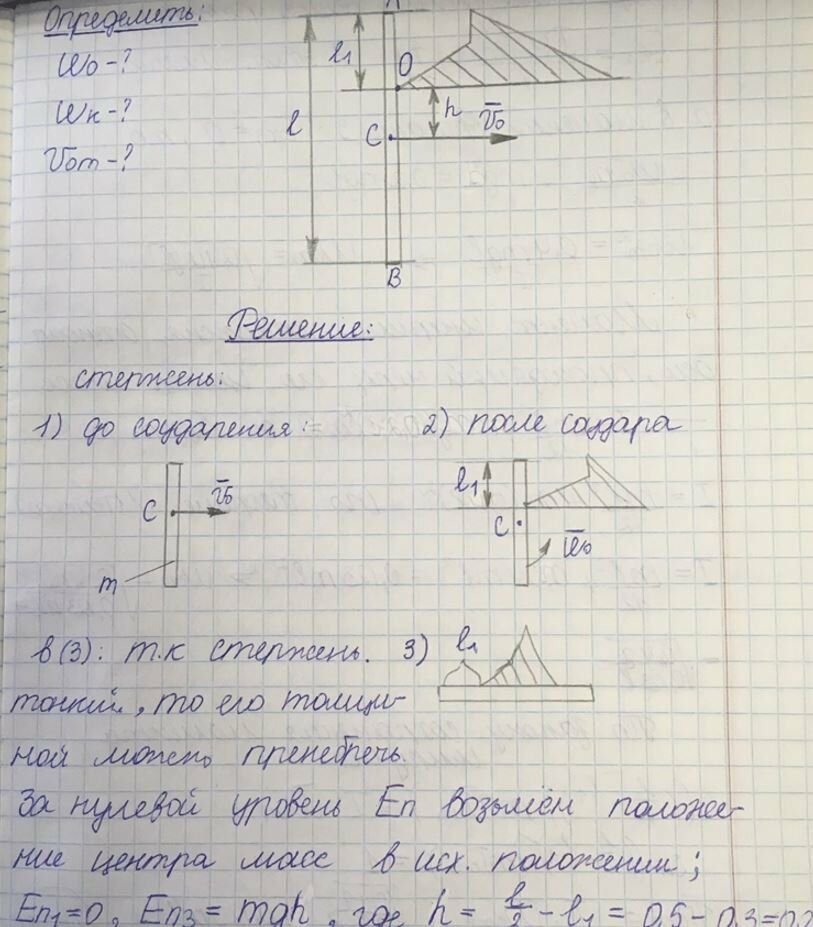 Определить:
ω₀ - ?
ωк - ?
Vom - ?
A
l₁
O
h
V̄₀
l
C
B
Решение:
стержень:
1) до соударения: 2) после соудара
C V̄₀
m
l₁
C
ω̄₀
в(3): т.к стержень. 3) l₁
тонкий, то его толщи-
ной можно пренебречь.
За нулевой уровень Eп возьмём положе-
ние центра масс в исх. положении;
Eп₁=0, Eп₃ = mgh, где h = l/2 - l₁ = 0,5 - 0,3 = 0,2